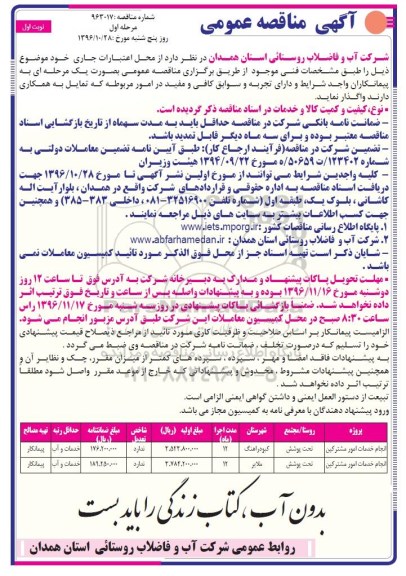 آگهی مناقصه عمومی
شماره مناقصه: ۹۶۳۰۱۷
مرحله اول
روز پنج شنبه مورخ: ۱۳۹۶/۱۰/۲۸
نوبت اول
شرکت آب و فاضلاب روستائی استان همدان در نظر دارد از محل اعتبارات جاری خود موضوع
ذیل را طبق مشخصات فنی موجود از طریق برگزاری مناقصه عمومی بصورت یک مرحله ای به
پیمانکاران واجد شرایط و دارای تجربه و سوابق کافی و مفید در امور مربوطه که تمایل به همکاری
دارند واگذار نماید.
• نوع، کیفیت و کمیت کالا و خدمات در اسناد مناقصه ذکر گردیده است.
- ضمانت نامه بانکی شرکت در مناقصه حداقل باید به مدت سه ماه از تاریخ بازگشایی اسناد
مناقصه معتبر بوده و برای سه ماه دیگر قابل تمدید باشد.
- تضمین شرکت در مناقصه (فرآیند ارجاع کار): طبق آیین نامه تضمین معاملات دولتی به
شماره ۱۲۳۴۰۲/ت۵۰۶۵۹ ه مورخ ۱۳۹۴/۰۹/۲۲ هیئت وزیران
- کلیه واجدین شرایط می توانند از مورخ اولین نشر آگهی تا مورخ ۱۳۹۶/۱۰/۲۸ جهت
دریافت اسناد مناقصه به اداره حقوقی و قراردادهای شرکت واقع در همدان، بلوار آیت اله
کاشانی، بلوک یک، طبقه اول (شماره تلفن ۳۲۵۱۶۹۰۰-۰۸۱، داخلی ۳۸۳-۳۸۵) و همچنین
جهت کسب اطلاعات بیشتر به سایت های ذیل مراجعه نمایند.
۱. پایگاه اطلاع رسانی مناقصات کشور: www.iets.mporg.ir
۲. شرکت آب و فاضلاب روستائی استان همدان: www.abfarhamedan.ir
- شایان ذکر است تهیه اسناد از محل فوق الذکر مورد تائید کمیسیون معاملات نمی
باشد.
• مهلت تحویل پاکات پیشنهاد و مدارک به دبیرخانه شرکت به آدرس فوق تا ساعت ۱۲ روز
دوشنبه مورخ ۱۳۹۶/۱۱/۱۶ بوده و به پیشنهادات واصله پس از ساعت و تاریخ فوق ترتیب اثر
داده نخواهد شد. ضمنا بازگشائی پاکات پیشنهادی در روز سه شنبه مورخ ۱۳۹۶/۱۱/۱۷ راس
ساعت ۸:۳۰ صبح در محل کمیسیون معاملات این شرکت طبق آدرس مزبور انجام می شود.
الزامیست پیمانکار بر اساس صلاحیت و ظرفیت کاری مورد تائید از مراجع ذیصلاح قیمت پیشنهادی
خود را تسلیم که درصورت تخلف، ضمانت نامه شرکت در مناقصه وی ضبط می گردد.
به پیشنهادات فاقد امضاء و مهر، سپرده، سپرده های کمتر از میزان مقرر، چک و نظایر آن و
همچنین پیشنهادات مشروط، مخدوش و پیشنهاداتی که خارج از موعد مقرر واصل شود مطلقا
ترتیب اثر داده نخواهد شد.
تبعیت از دستور العمل ایمنی و داشتن گواهی ایمنی الزامی است.
ورود پیشنهاد دهندگان با معرفی نامه به کمیسیون مجاز می باشد.
پروژه | روستا/مجتمع | شهرستان | مدت اجرا (ماه) | مبلغ اولیه (ریال) | شاخص تعدیل | مبلغ ضمانتنامه (ریال) | حداقل رتبه | تهیه مصالح
انجام خدمات امور مشترکین | تحت پوشش | کبودراهنگ | ۱۲ | ۳,۵۲۳,۸۰۰,۰۰۰ | ندارد | ۱۷۶,۲۰۰,۰۰۰ | خدمات و آب | پیمانکار
انجام خدمات امور مشترکین | تحت پوشش | ملایر | ۱۲ | ۳,۷۸۳,۲۰۰,۰۰۰ | ندارد | ۱۸۹,۲۵۰,۰۰۰ | خدمات و آب | پیمانکار
بدون آب، کتاب زندگی را باید بست
روابط عمومی شرکت آب و فاضلاب روستائی استان همدان